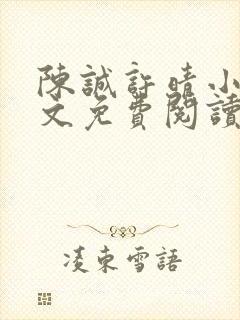 陳誠許晴小
文免費閱讀
凌東雪語